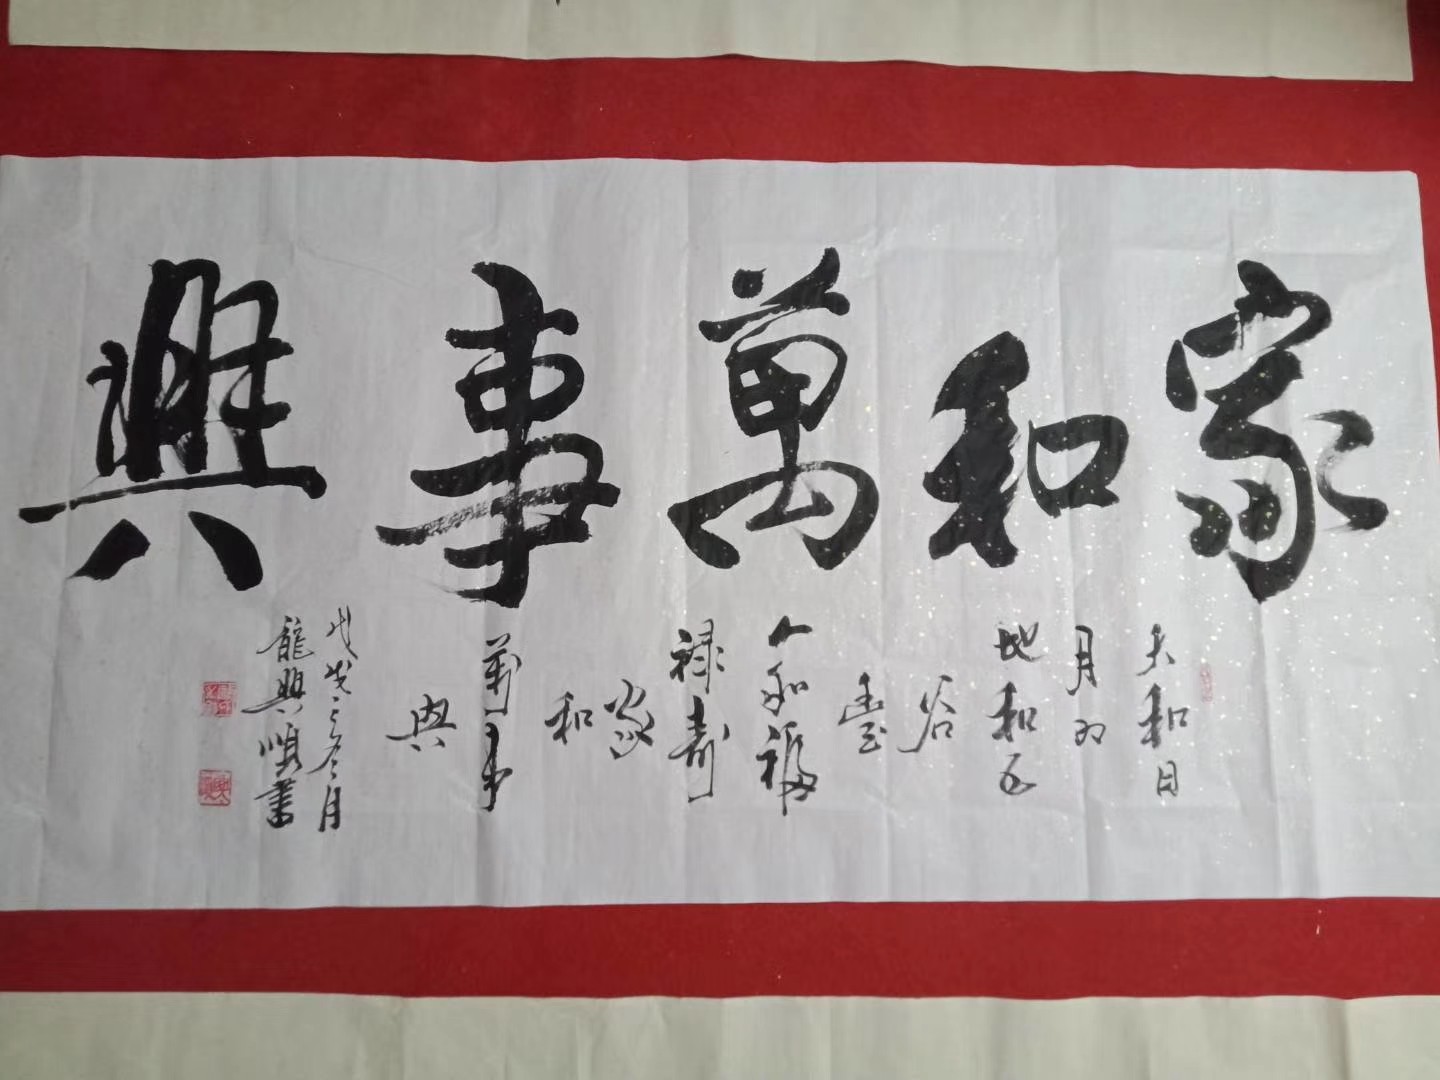 家和萬事興
天和日
月明
地和五
谷
豐
人和福
禄壽
家
和
萬事
興
戊戌之冬月
龍興順書